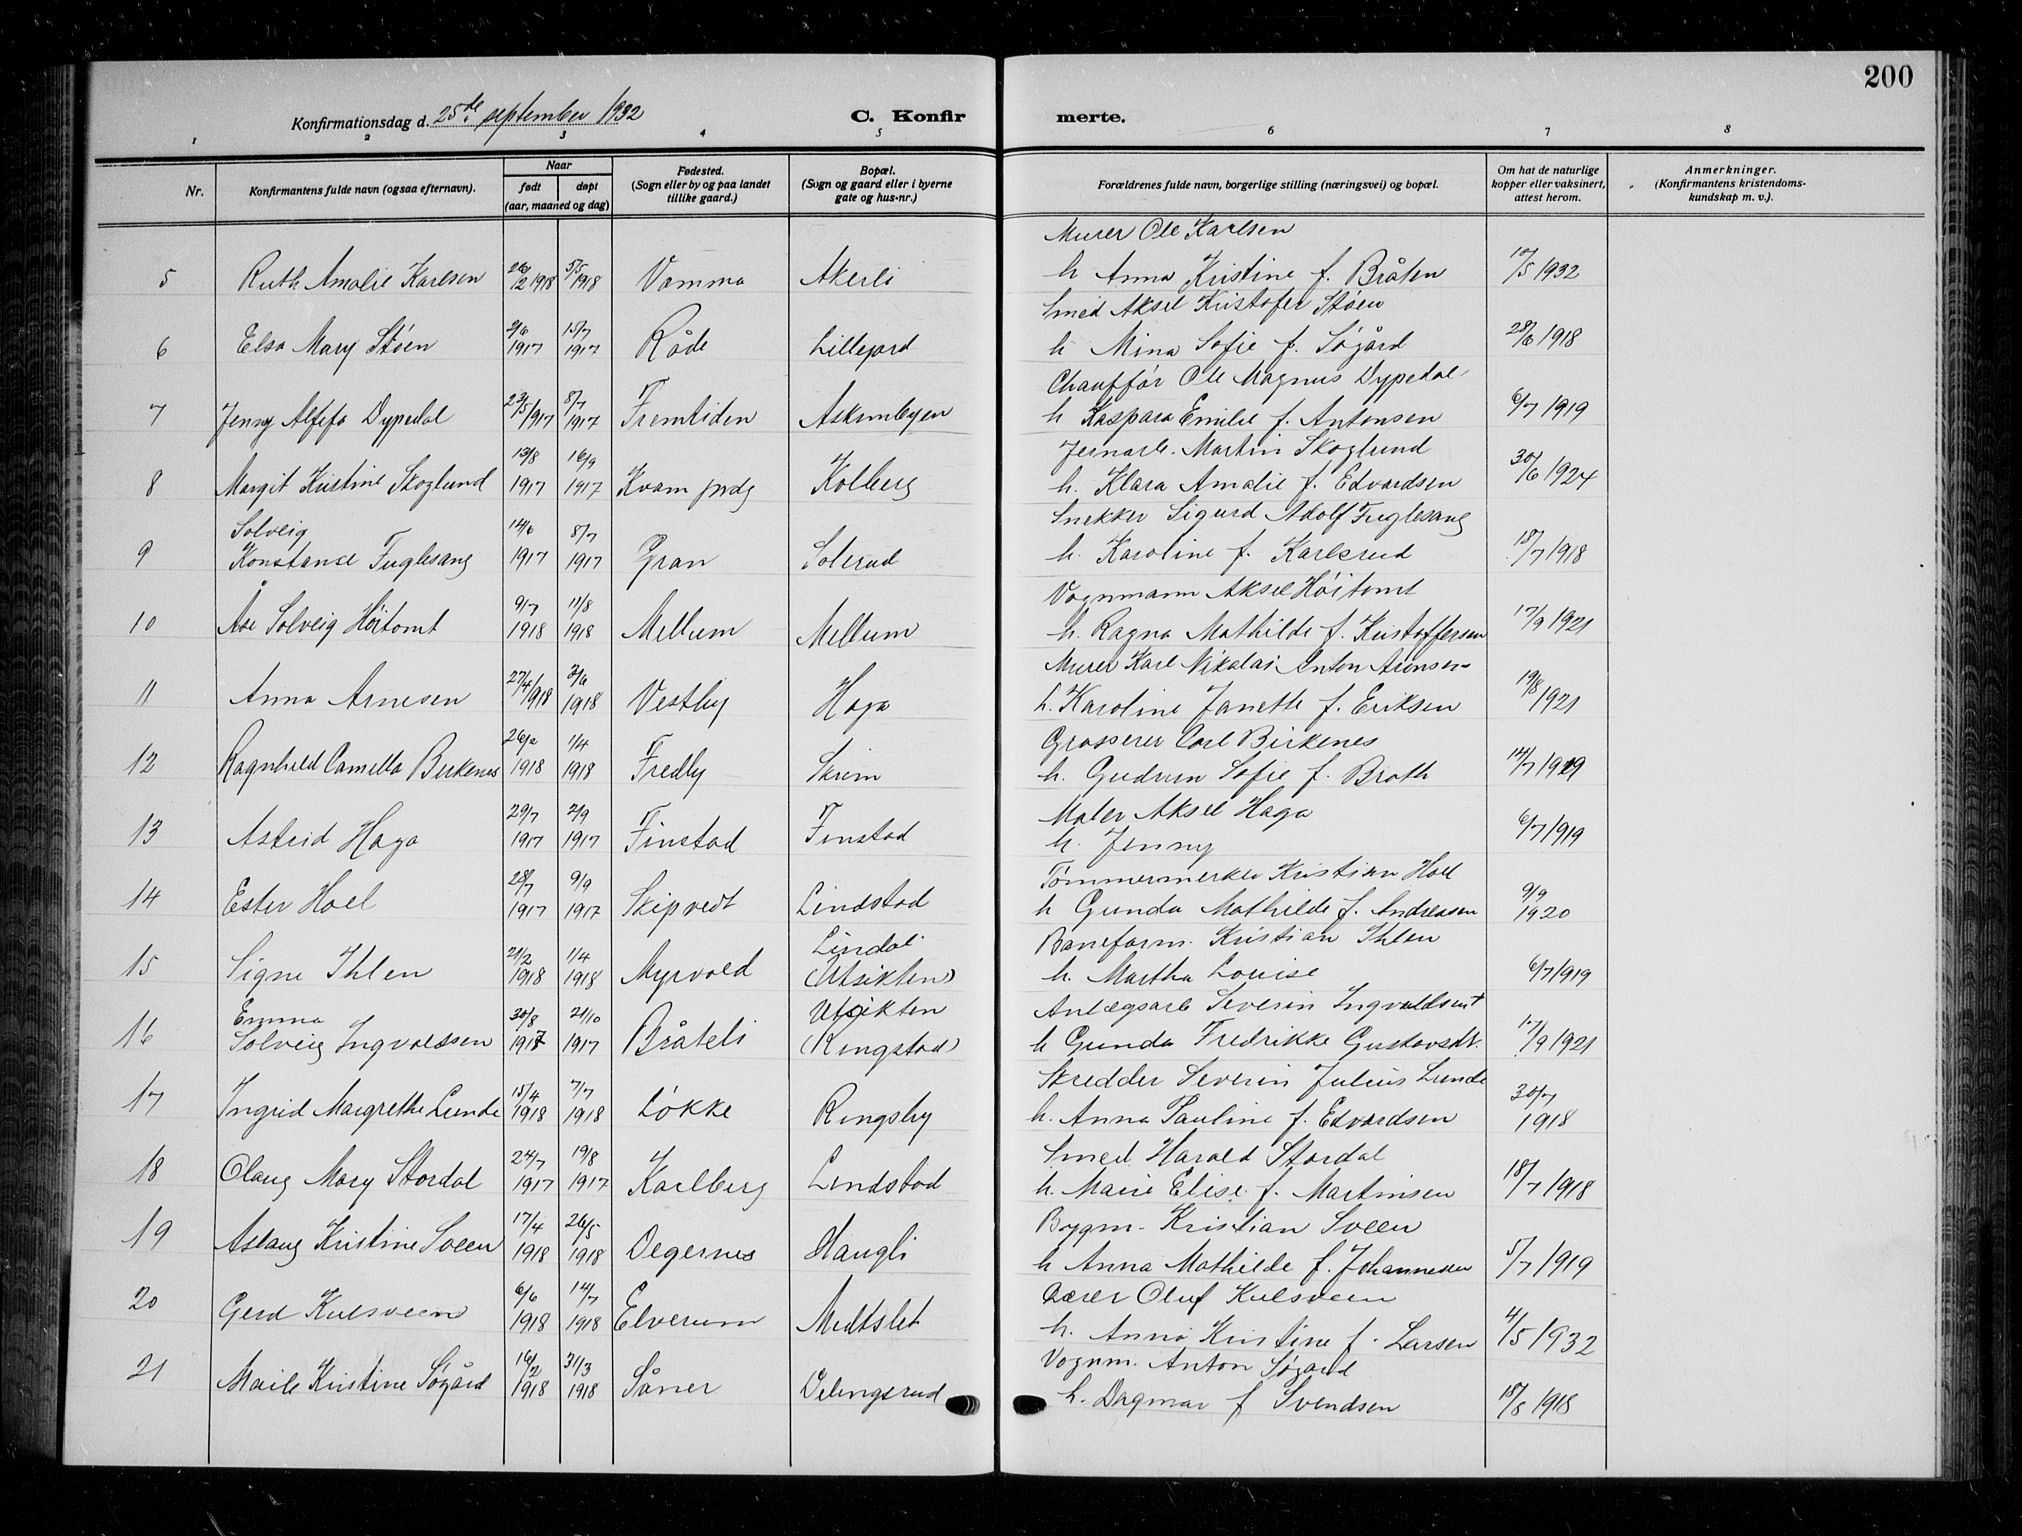 200
Konfirmationsdag d. 25de september 1932 C. Konfir merte.
1 2 3 4 5 6 7 8
Nr. Konfirmantens fulde navn (ogsaa efternavn). Naar født døpt (aar, maaned og dag) Fødested. (Sogn eller by og paa landet tillike gaard.) Bopæl. (Sogn og gaard eller i byerne gate og hus-nr.) Forældrenes fulde navn, borgerlige stilling (næringsvei) og bopæl. Om hat de naturlige kopper eller vaksinert, attest herom. Anmerkninger. (Konfirmantens kristendoms-kundskap m. v.).
Murer Ole Karlsen
5 Ruth Amalie Karlsen 26/2 1918 5/5 1918 Vamma Akerli h Anna Kristine f. Bråten 10/5 1932
Smed Aksel Kristofer Støen
6 Elsa Mary Støen 2/6 1917 15/7 1917 Råde Lillejord h Mina Sofie f. Søgård 28/6 1918
Chauffør Ole Magnus Dypedal
7 Jenny Alfifa Dypedal 23/5 1917 8/7 1917 Fremtiden Askimbyen h Kaspara Emilie f. Antonsen 6/7 1919
Jernarb. Martin Skoglund
8 Margit Kristine Skoglund 13/8 1917 16/9 1917 Kvam prdg Kolberg h. Klara Amalie f. Edvardsen 30/6 1924
Solveig Snekker Sigurd Adolf Fuglesang
9 Konstanse Fuglesang 14/6 1917 8/7 1917 Gran Solerud h. Karoline f. Karlsrud 18/7 1918
Vognmann Aksel Høitomt
10 Åse Solveig Høitomt 9/7 1918 11/8 1918 Mellum Mellum h. Ragna Mathilde f. Kristoffersen 17/9 1921
Murer Karl Nikolai Anton Aronsen
11 Anna Arnesen 27/4 1918 2/6 1918 Vestby Haga h. Karoline Janette f. Eriksen 19/8 1921
Grosserer Carl Birkenes
12 Ragnhild Camella Birkenes 26/2 1918 1/4 1918 Fredly Skrim h. Gudrun Sofie f. Broth 14/7 1919
Maler Aksel Haga
13 Astrid Haga 29/7 1917 2/9 1917 Finstad Finstad h. Jenny 6/7 1919
Tømmermerker Kristian Hoel
14 Ester Hoel 28/7 1917 9/9 1917 Skipvedt Lindstad h Gunda Mathilde f. Andreassen 9/9 1920
Lindal Baneform. Kristian Ihlen
15 Signe Ihlen 21/2 1918 1/4 1918 Myrvold (Utsikten) h. Martha Louise 6/7 1919
Emma Utsikten Anlægsarb Severin Ingvaldsen
16 Solveig Ingvaldsen 30/8 1917 21/10 1917 Bråteli (Ringstad) h Gunda Fredrikke Gustavsdt. 17/9 1921
Skredder Severin Julius Lunde
17 Ingrid Margrethe Lunde 15/4 1918 7/7 1918 Løkke Ringsby h. Anna Pauline f. Edvardsen 30/7 1918
Smed Harald Stordal
18 Olaug Mary Stordal 24/7 1917 19/8 1917 Karlberg Lindstad h. Marie Elise f. Martinsen 18/7 1918
Byggm. Kristian Sveen
19 Aslaug Kristine Sveen 17/4 1918 26/5 1918 Degernes Haugli h Anna Mathilde f. Johannesen 5/7 1919
Lærer Oluf Kulsveen
20 Gerd Kulsveen 6/6 1918 14/7 1918 Elverum Midtslet h. Anna Kristine f. Larsen 4/5 1932
Vognm. Anton Søgård
21 Maile Kristine Søgård 16/2 1918 31/3 1918 Såner Velingsrud h. Dagmar f Svendsen 15/8 1918